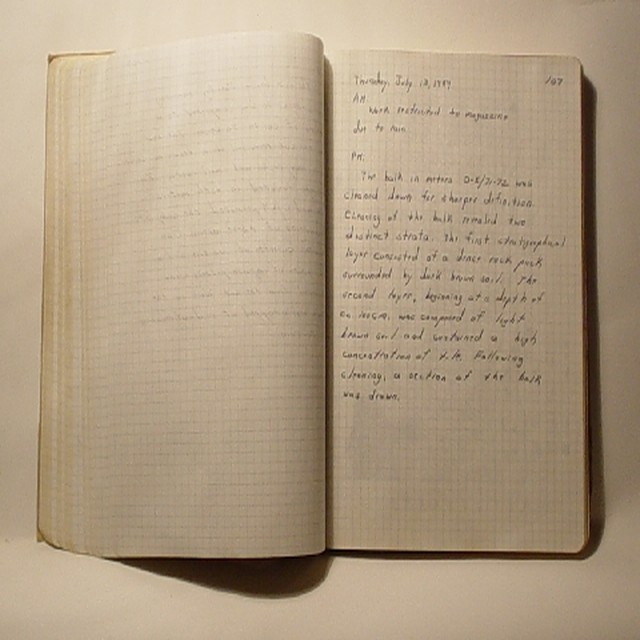 Thursday, July 13, 1989 107
AM.
Work restricted to magazine
due to rain.
PM.
The balk in meters D-E/71-72 was
cleaned down for sharper definition.
Cleaning of the balk revealed two
distinct strata. The first stratigraphical
layer consisted of a dense rock pack
surrounded by dark brown soil. The
second layer, beginning at a depth of
was composed of light
brown soil and contained a high
concentration of tile. Following
cleaning, a section of the balk
was drawn.